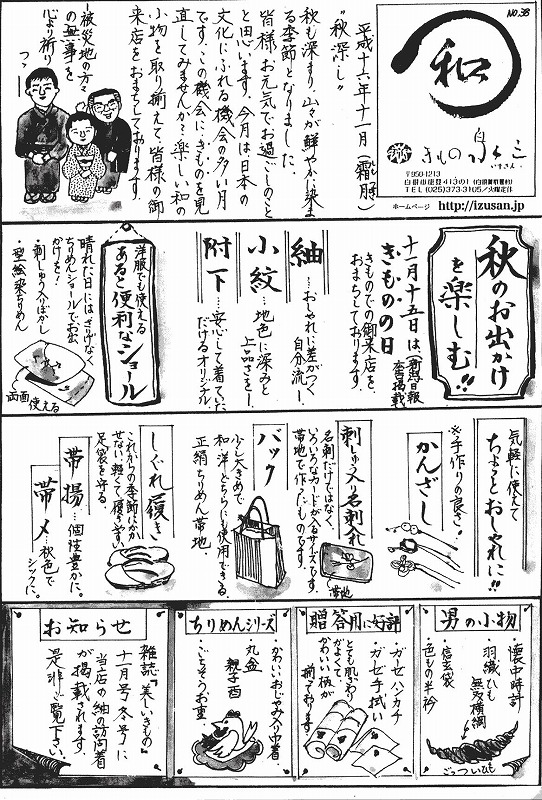 NO.38
和
きもの 白 いずみ
いずさん
〒950-1213
ホームページ http://izusan.jp/
平成十六年十一月(霜月)
"秋深し"
秋も深まり、山々が鮮やかに染ま
る季節となりました。
皆様、お元気でお過ごしのこと
と思います。今月は日本の
文化にふれる機会の多い月
です。この機会にきものを見
直してみませんか？楽しい和の
小物を取り揃えて皆様の御
来店をおまちしております。
-被災地の方々
の無事を
心より祈り
つつ-
秋のお出かけ
を楽しむ!!
十一月十五日は(新潟日報
広告掲載)
きものの日
きものでの御来店を、
おまちしております。
紬
…おしゃれに差がつく
自分流!
小紋
…地色に深みと
上品さを!
附下
…安心して着ていた
だけるオリジナル
洋服でも使える
あると便利なショール
晴れた日にはさりげなく
ちりめんショールでお出
かけを!
・刺しゅう入りぼかし
・型絵染ちりめん
両面
使える
気軽に使えて
ちょっとおしゃれに!!
※手作りの良さ!
かんざし
刺しゅう入り名刺入れ
名刺だけではなく、
いろいろなカードが入るサイズです。
帯地で作ったものです。
帯地
バック
少し大きめで
和洋どちらにも使用できる。
正絹ちりめん帯地。
しぐれ履き
これからの季節にはか
かせない、軽くて履きやすい
足袋を守る
帯揚…個性豊かに。
帯〆…秋色で
シックに。
男の小物
・懐中時計
・羽織ひも
無双横綱
・信玄袋
・色もの半衿
ごっついひも
贈答用に好評
・ガーゼハンカチ
・ガーゼ手拭い
とても肌ざわり
がよくて、
かわいい柄が
揃っております
ちりめんシリーズ
・かわいいおじゃみの巾着
・丸盆
・親子酉
・ごちそうお重
お知らせ
雑誌『美しいきもの』
十一月号(冬号)に
当店の紬の訪問着
が掲載されます。
是非ご覧下さい。